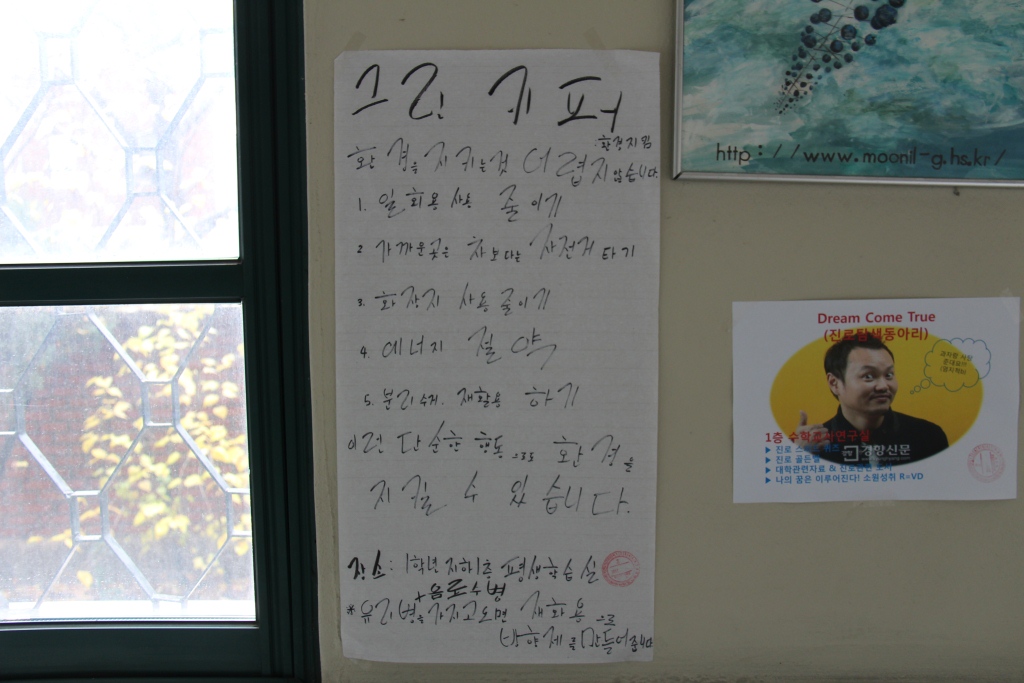 그린 키퍼
:환경지킴
환경을 지키는것 어렵지 않습니다.
1. 일회용 사용 줄이기
2 가까운곳은 차보다는 자전거 타기
3. 화장지 사용 줄이기
4. 에너지 절약
5. 분리수거. 재활용 하기
이런 단순한 행동으로도 환경을
지킬 수 있습니다.
장소: 1학년 지하1층 평생학습실
+음료수병
*유리병을 가지고오면 재활용으로
방향제를 만들어줍니다
http://www.moonil-g.hs.kr/
Dream Come True
(진로탐색동아리)
1층 수학
▶ 진로
경향신문
▶ 진로 골든벨
▶ 대학관련자료 & 진로관련
▶ 나의 꿈은 이루어진다! 소원성취 R=VD